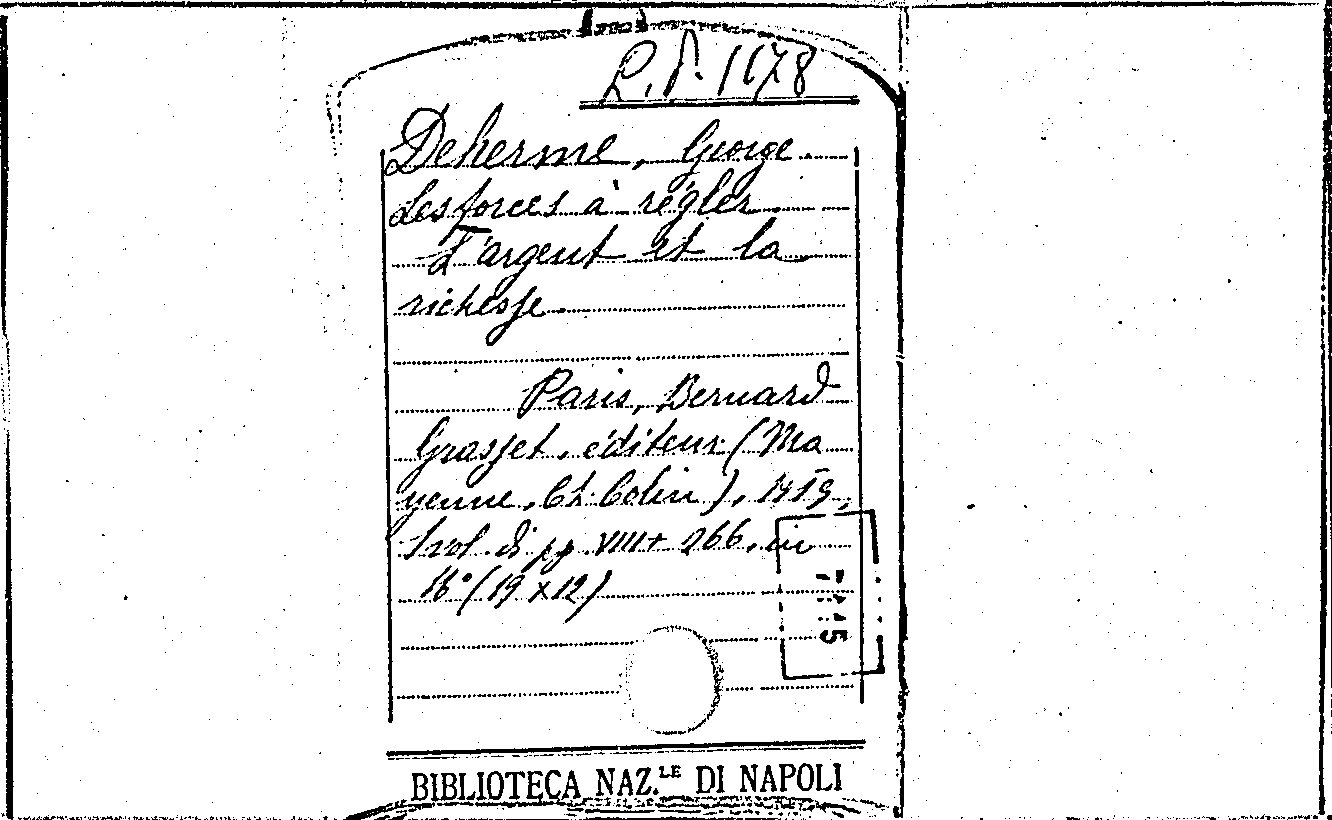 Deherme, George.
Les forces à régler.
L'argent et la
richesse
Paris, Bernard
Grasset, éditeur (Ma
yenne, Ch. Colin), 1919,
1 vol. di pp. VIII+ 266, in
16° (19 x 12)
BIBLIOTECA NAZ.LE DI NAPOLI